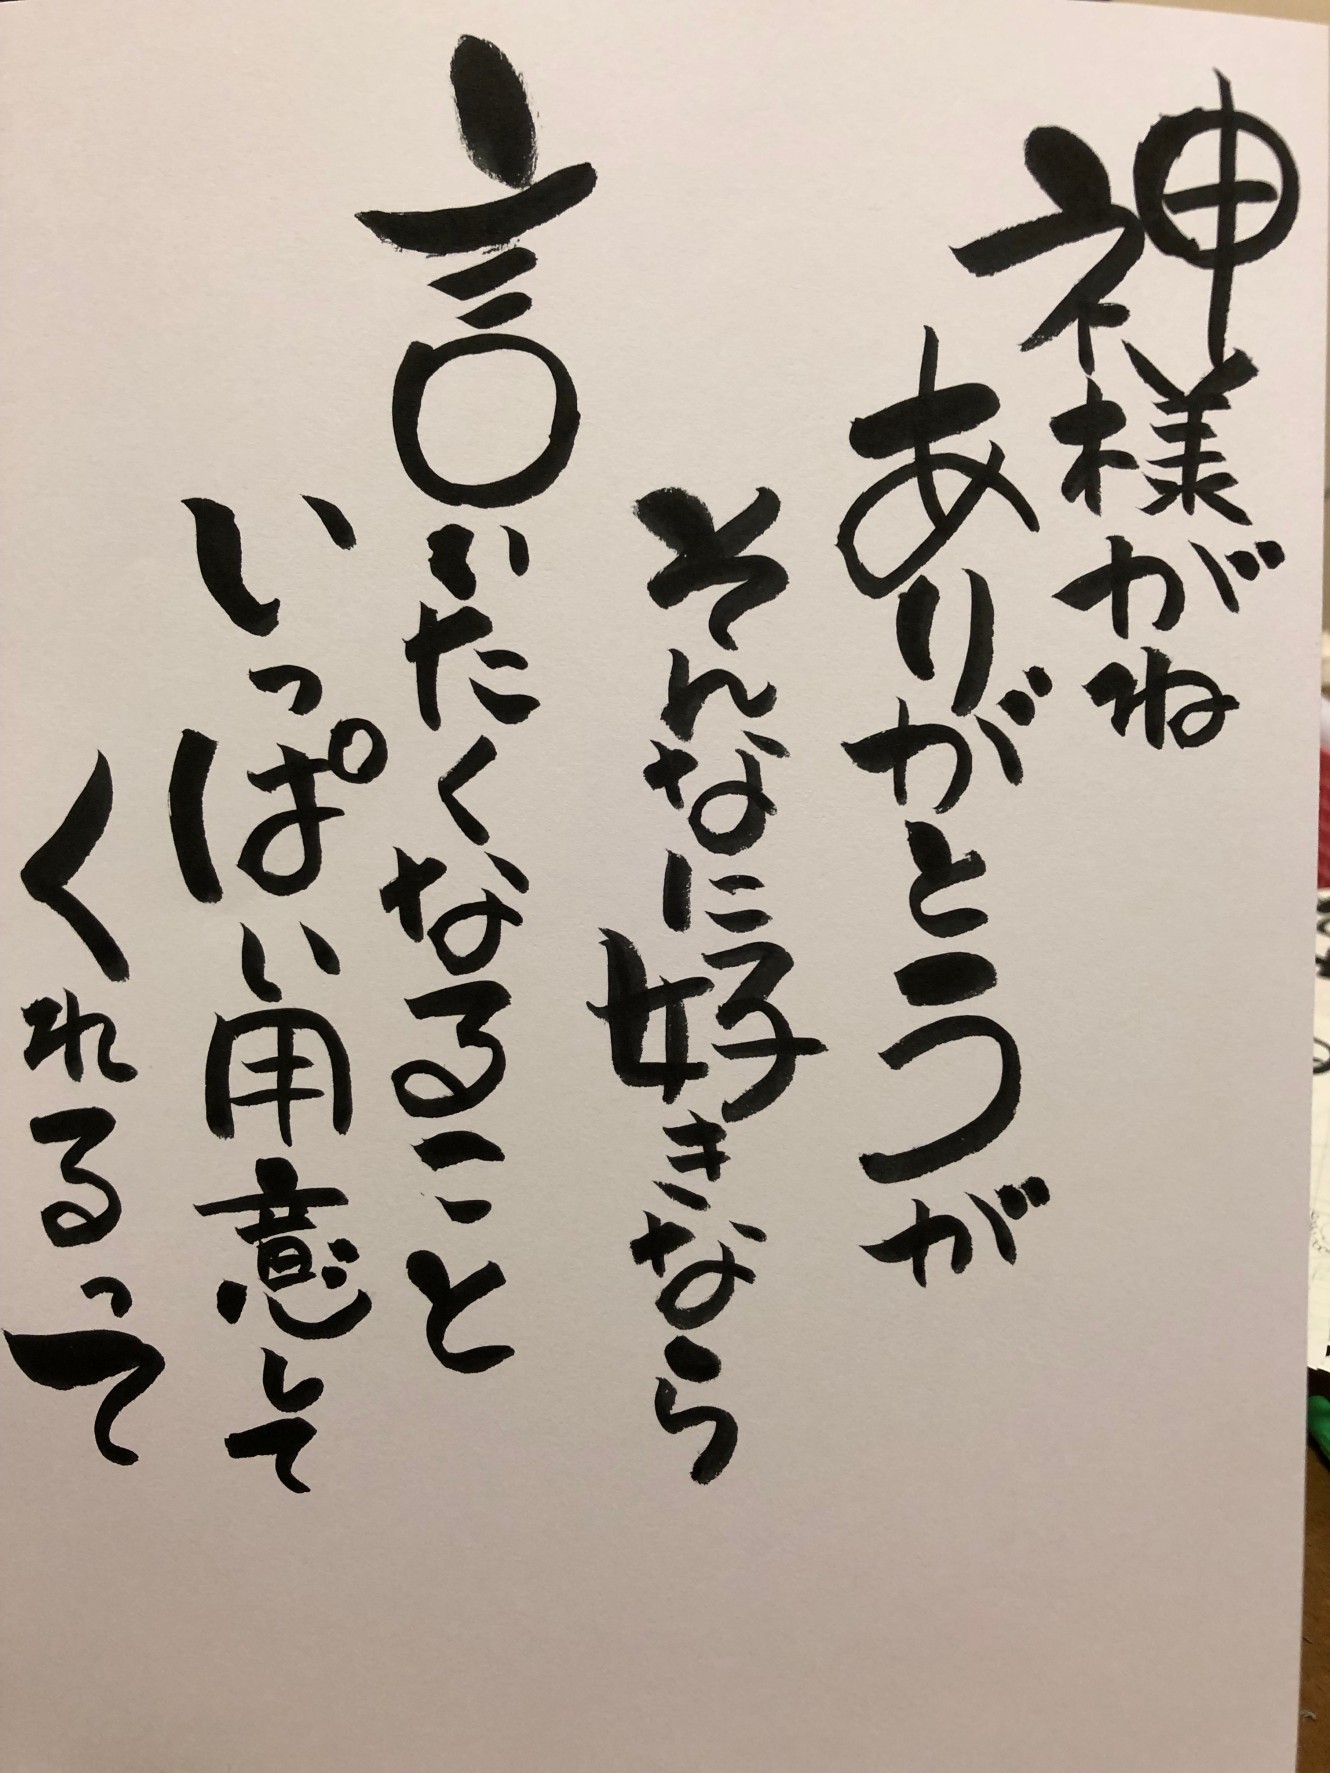 神様がね
ありがとうが
そんなに好きなら
言いたくなること
いっぱい用意して
くれるって